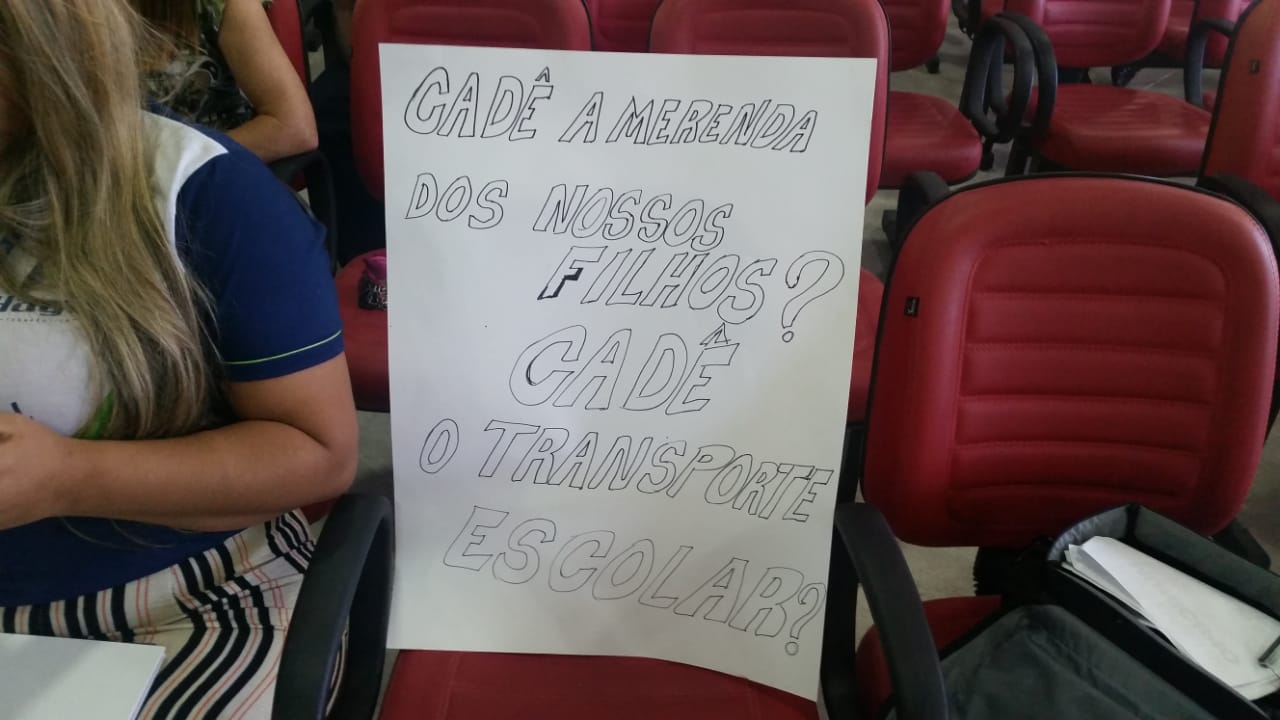 CADÊ A MERENDA
DOS NOSSOS
FILHOS?
CADÊ
O TRANSPORTE
ESCOLAR?